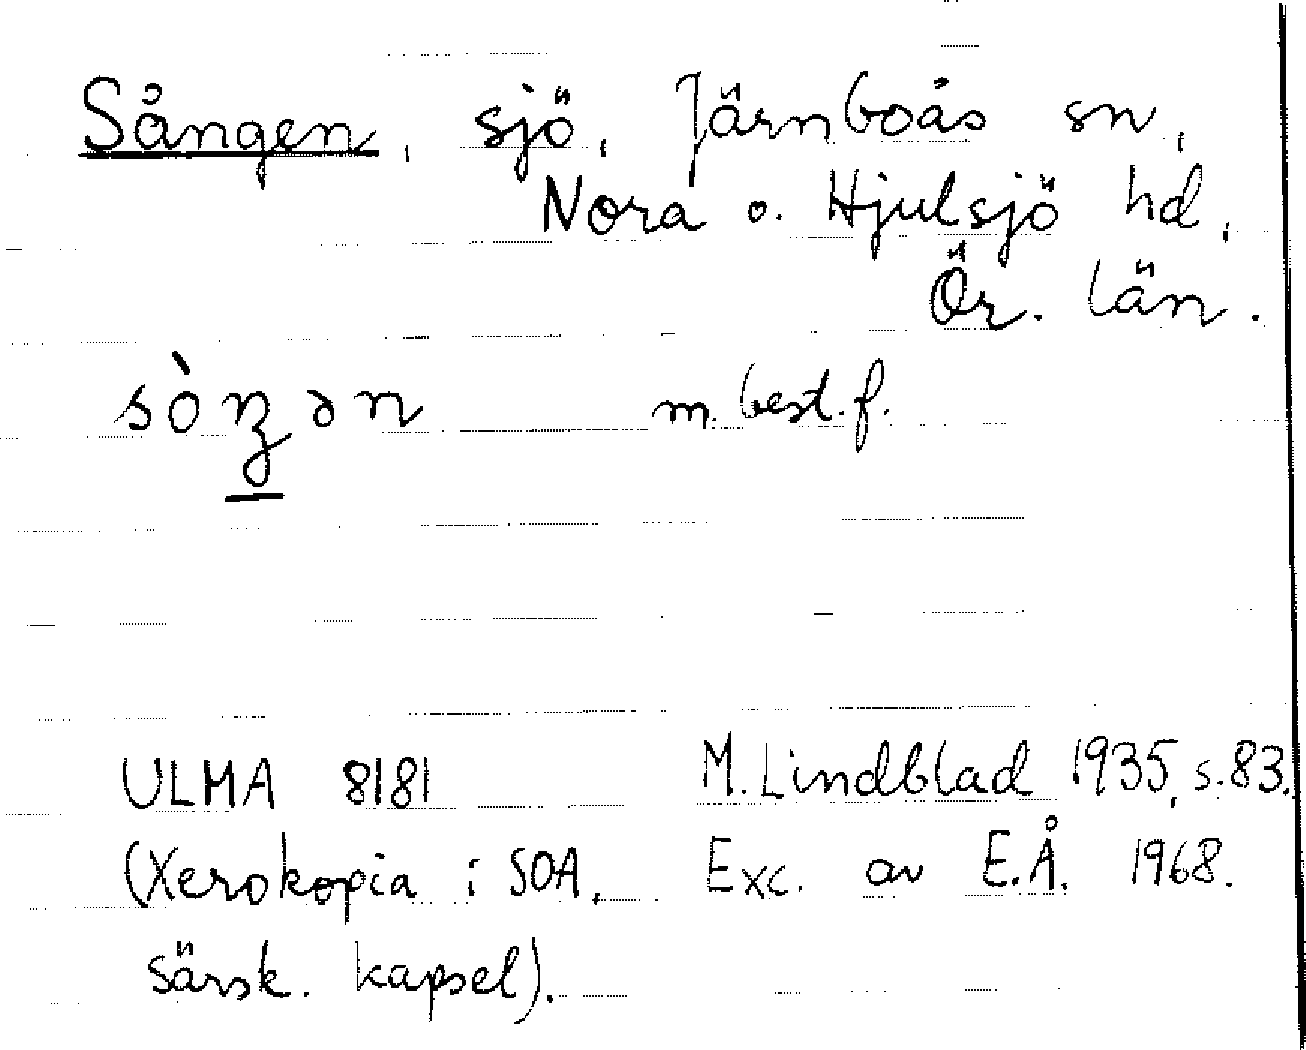 Sången, sjö, Järnboås sn,
Nora o. Hjulsjö hd,
Ör. län.
sòŋən m. best. f.
ULMA 8181 M. Lindblad 1935, s. 83.
(Xerokopia i SOA, Exc. av E.Å. 1968.
särsk. kapsel).